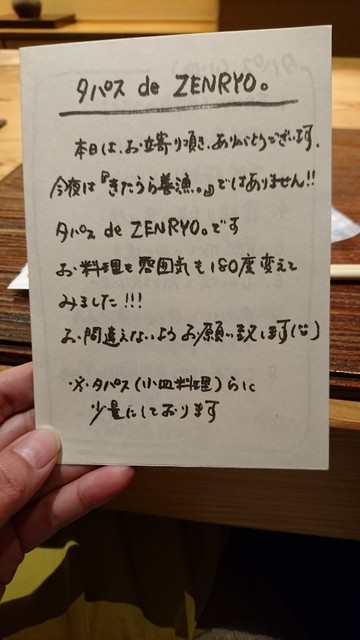 タパス de ZENRYO。
本日は、お立寄り頂き、ありがとうございます。
今夜は『きたうら善漁。』ではありません!!
タパス de ZENRYO。です
お料理も雰囲気も180度変えて
みました!!!
お間違えないようお願い致します(^^)
※タパス(小皿料理)らに
少量にしております